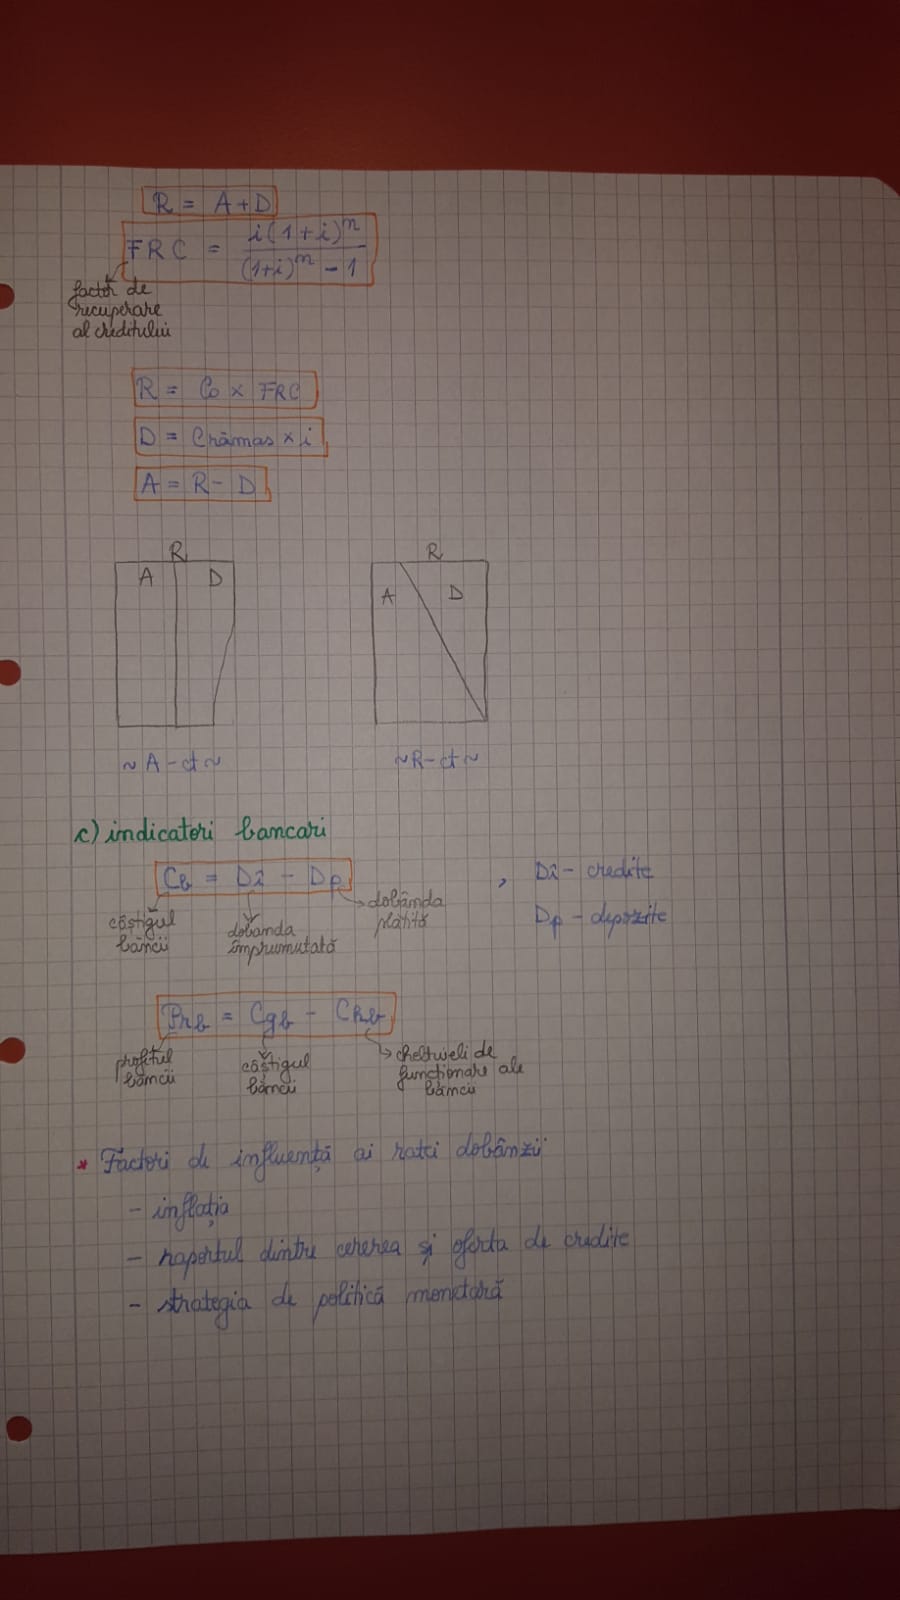 R = A + D
FRC = i(1+i)^n / (1+i)^n - 1
factor de
recuperare
al creditului
R = Co x FRC
D = Crămas x i
A = R - D
R
A
D
~ A - ct ~
R
A
D
~ R - ct ~
c) indicatori bancari
Cb = Dî - Dp
câștigul
băncii
dobânda
împrumutată
dobânda
plătită
, Dî - credite
Dp - depozite
Prb = Cgb - Chb
profitul
băncii
câștigul
băncii
cheltuieli de
funcționare ale
băncii
* Factori de influență ai ratei dobânzii
- inflația
- raportul dintre cererea și oferta de credite
- strategia de politică monetară